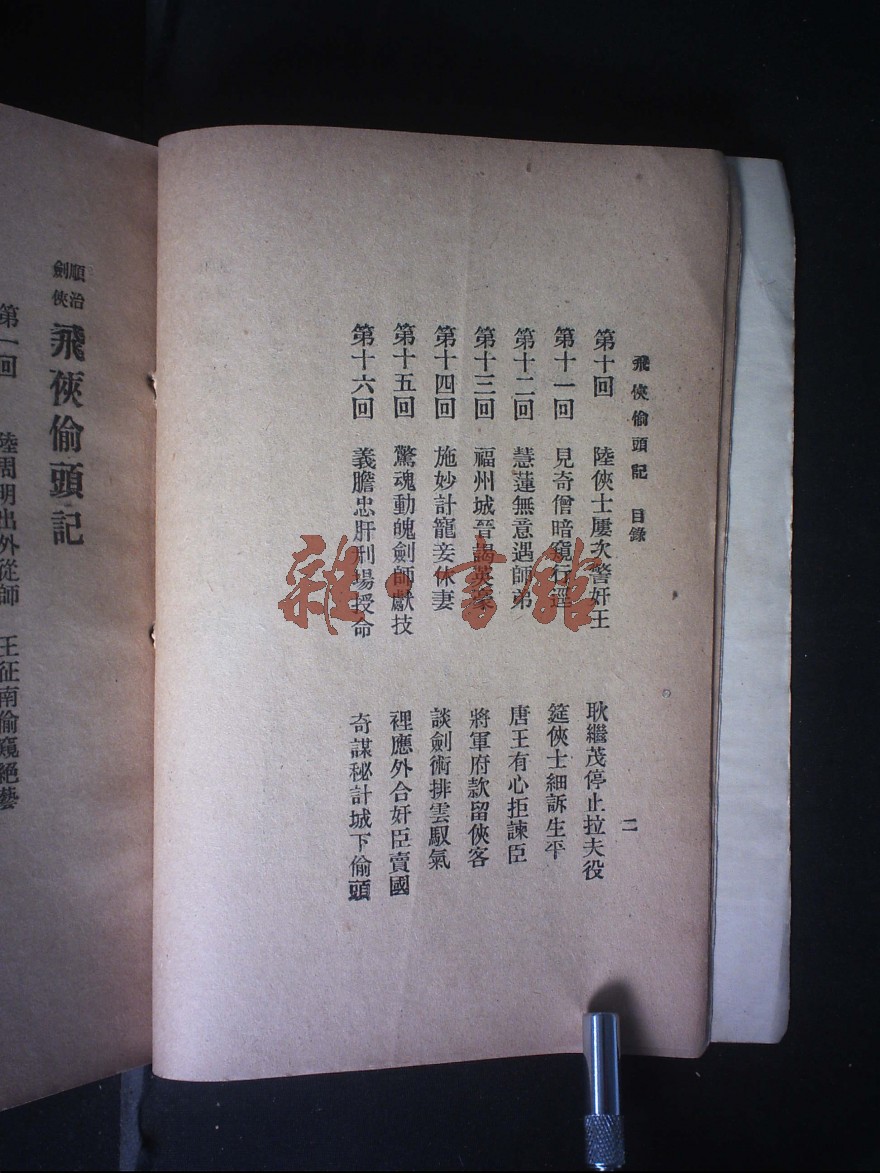 飛俠偷頭記 目錄 二
第十回 陸俠士屢次警奸王 耿繼茂停止拉夫役
第十一回 見奇僧暗窺行逕 筵俠士細訴生平
第十二回 慧蓮無意遇師弟 唐王有心拒諫臣
第十三回 福州城晉謁英豪 將軍府款留俠客
第十四回 施妙計寵妾休妻 談劍術排雲馭氣
第十五回 驚魂動魄劍師獻技 裡應外合奸臣賣國
第十六回 義膽忠肝刑場授命 奇謀秘計城下偷頭
順治劍俠 飛俠偷頭記
第一回 陸周明出外從師 王征南偷窺絕藝
雜·書館